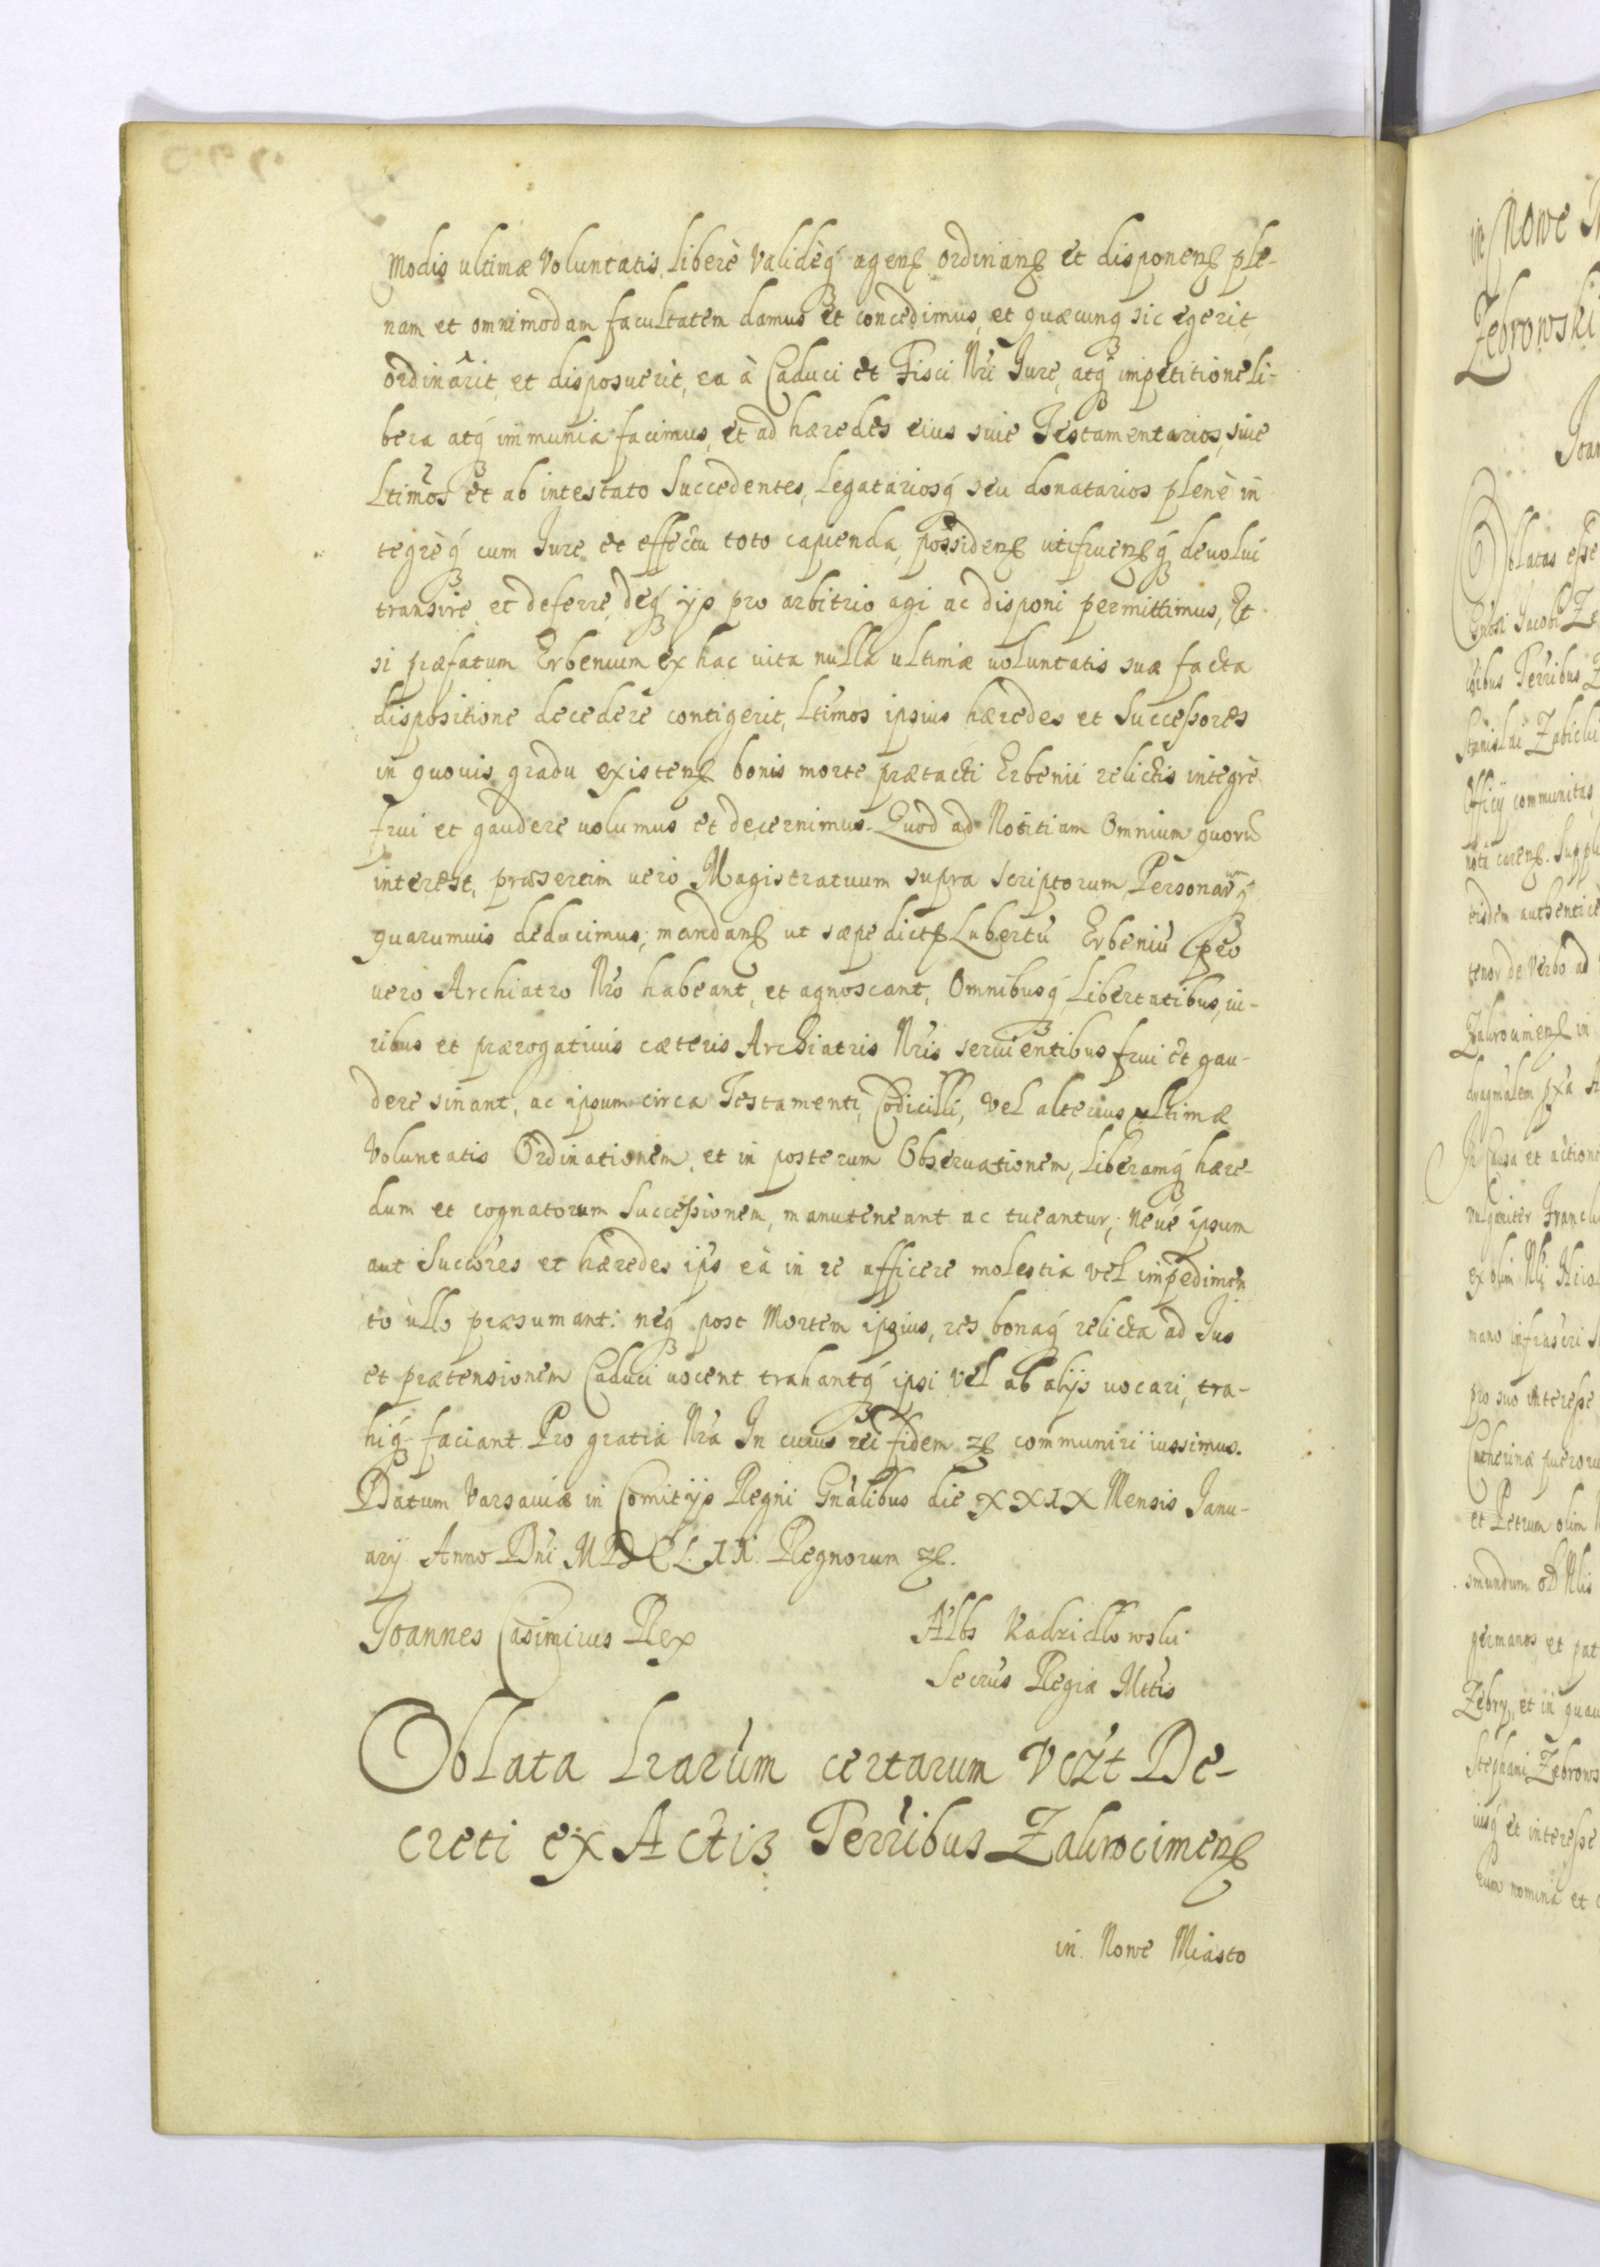 Modis ultimæ Voluntatis, Liberè Validèq́ agenꝭ ordinanꝭ et disponenꝭ ple-
nam et omnimodam facultatem damus et concedimus, et quæcunq sic egerit,
ordinârit, et disposuerit, ea à Caduci et Fisci Nri Jure, atq́ impetitione li-
bera atq́ immunia facimus, et ad hæredes eius siue Testamentarios, siue
Ltimos et ab intestato Succedentes, Legatariosq́ seu donatarios plenè in
tegrèq́ cum Jure et effectu toto capienda, possidenꝭ utifruenꝭq́ deuolui
transire, et deferre, deq́ ijs pro arbitrio agi ac disponi permittimus, Et
si præfatum Erbenium ex hac uita nulla ultimæ uoluntatis suæ facta
dispositione decedere contigerit, Ltimos ipsius hæredes et Successores
in quouis gradu existenꝭ bonis morte prætacti Erbenii relictis integrè
frui et gaudere uolumus et decernimus. Quod ad Notitiam Omnium quorũ
interest, præsertim uero Magistratuum supra scriptorum, Personarumq́
quarumuis deducimus; mandanꝭ ut sæpe dictꝭ Lubertũ Erbeniũ pro
uero Archiatro Nro habeant, et agnoscant, Omnibusq́ Libertatibus, iu-
ribus et prærogatiuis cæteris Archiatris Nris seruientibus frui et gau-
dere sinant, ac ipsum circa Testamenti, Codicilli, Vel alterius ultimæ
Voluntatis Ordinationem, et in posterum Obseruationem, Liberamq́ hære-
dum et cognatorum Successionem, manuteneant ac tueantur; Neue ipsum
aut Succores et hæredes ips eà in re afficere molestia vel impedimen
to ullo præsumant: neq́ post Mortem ipsius, res bonaq́ relicta ad Jus
et prætensionem Caduci uocent trahantq́ ipsi Vel ab alijs uocari, tra-
hiq́ faciant Pro gratia Nra In cuius rei fidem ꝛꝭ communiri iussimus.
Datum Varsauiæ in Comitijs Regni Gnalibus die XXIX Mensis Janu-
arij Anno Dni MDCLXII Regnorum ꝛꝭ.
Joannes Casimirus Rex
Albs Kadzidlowski
Secrius Regiæ Mttis
Oblata Lrarum certarum Vezt De-
creti ex Actis Terribus Zakrocimenꝭ
in Nowe Miasto
in Nowe
Zebrowski
Oblatas esse
Stanislai
Officij communitas,
eisdem authentice
tenor de verbo ad
Zakrocimenꝭ in
In Causa et actione
pro suo interesse
et Petrum olim
germanos et pat
Zebry, et in quau
Stephani Zebrows
iusq́ et interesse
rum nomina et